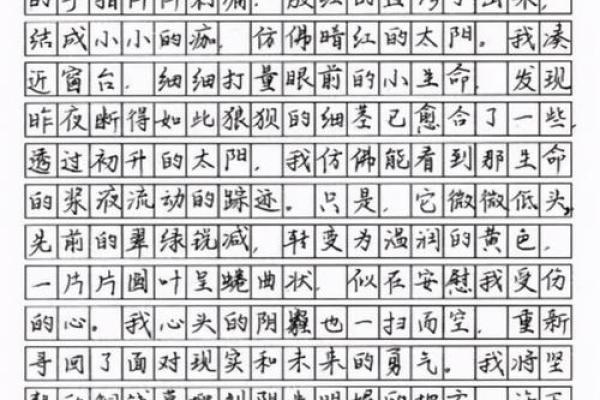 的手指阵阵刺痛,殷红的血 了出来,
结成小小的痂,仿佛暗红的太阳。我凑
近窗台,细细打量眼前的小生命,发现
昨夜断得如此狼狈的细茎已愈合了一些,
透过初升的太阳,我仿佛能看到那生命
的浆液流动的踪迹。只是,它微微低头,
先前的翠绿锐减,转变为温润的黄色,
一片片圆叶呈蜷曲状,似在安慰我受伤
的心。我心头的阴霾也一扫而空,重新
寻回了面对现实和未来的勇气。我将坚